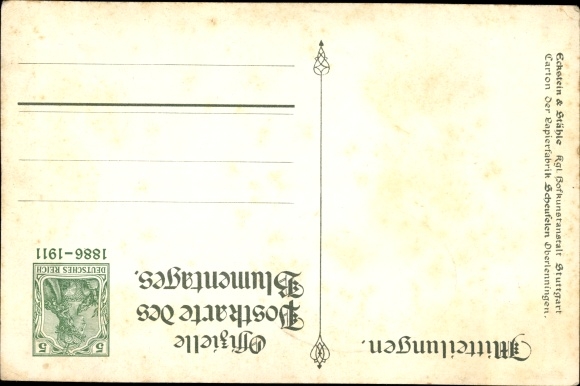 Mitteilungen.
Offizielle
Postkarte des
Blumentages.
5 5
DEUTSCHES REICH
1886–1911
Eckstein & Stähle Kgl. Hofkunstanstalt Stuttgart
Carton der Papierfabrik Scheufelen Oberlenningen.